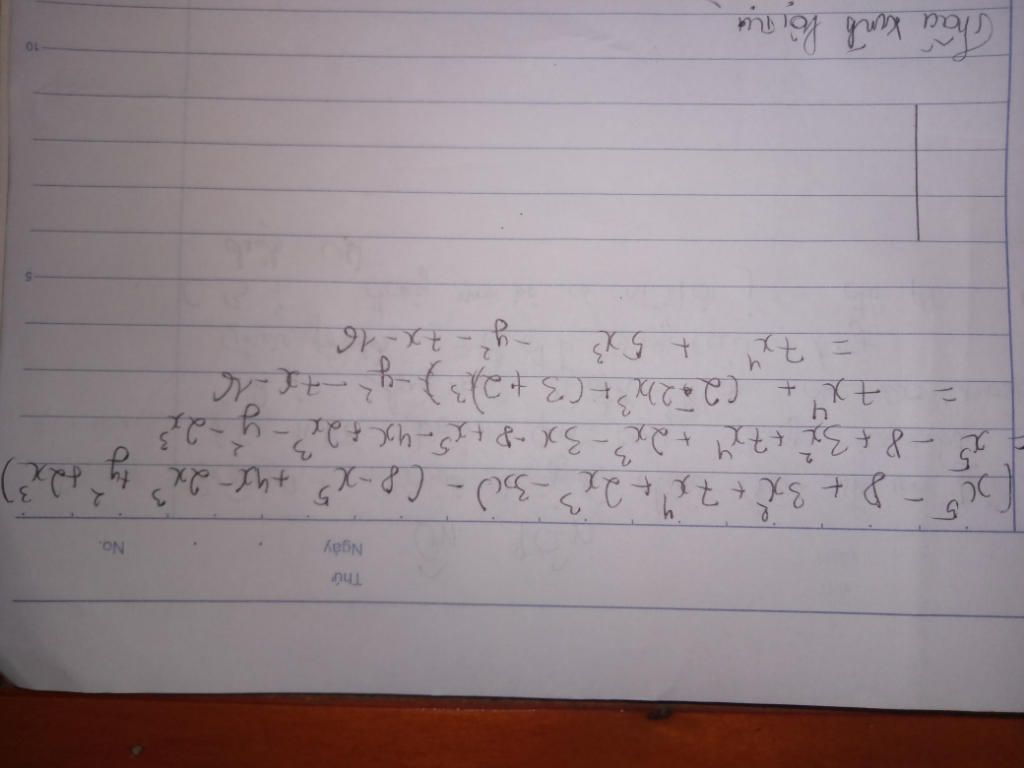 Thứ
Ngày
No.
(x⁵ - 8 + 3x² + 7x⁴ + 2x³ - 3x) - (8 - x⁵ + 4x - 2x³ + y² + 2x³)
= x⁵ - 8 + 3x² + 7x⁴ + 2x³ - 3x - 8 + x⁵ - 4x + 2x³ - y² - 2x³
= 7x⁴ + (2 - 2)x³ + (3 + 2)x³) - y² - 7x - 16
= 7x⁴ + 5x³ - y² - 7x - 16
5
10